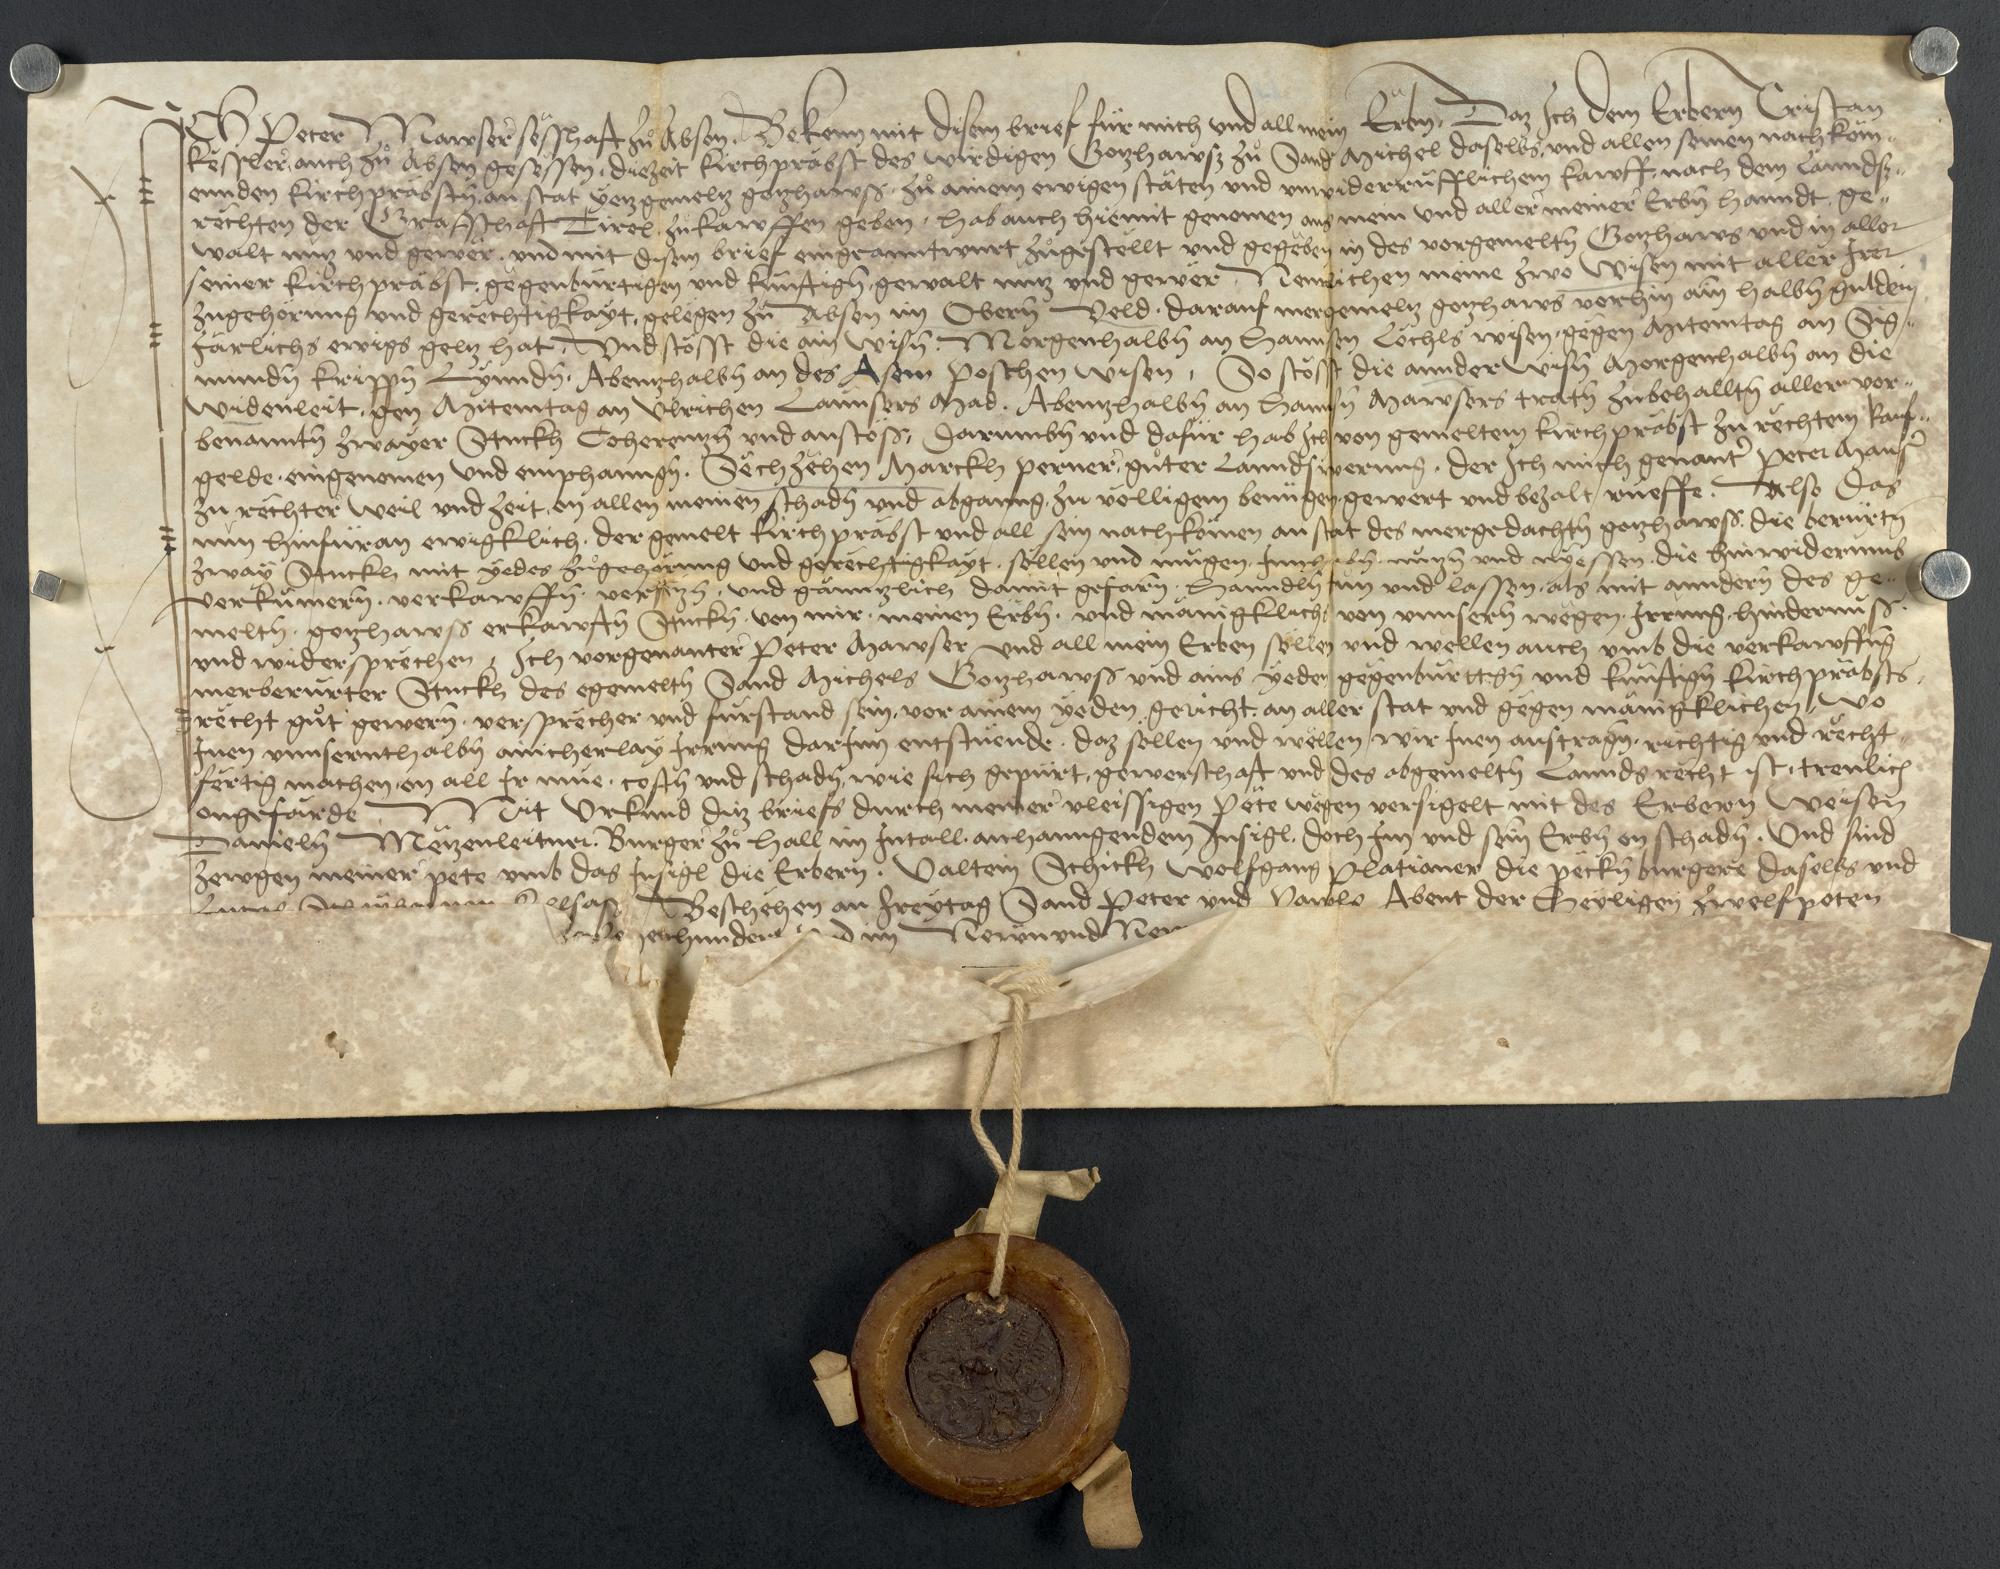 Ich Peter Mawser sesshaft zů Absen. Bekenn mit disem brief für mich und all mein Erbn, Daz Ich dem Erbern Cristan
kessler, auch zů Absen gesessen, diezeit kirchpräbst des wirdigen Gotzhawsz zů Sand Michel daselbs, und allen seinen nachköm-
ennden kirchpräbstn, an stat yetzgemeltz gotzhawss, zů ainem ewigen stäten und unwiderrufflichem kawff, nach dem Lanndsz-
rechten der Grafschaft Tirol, zůkawffen geben, hab auch hiemit genomen aus mein und aller meiner Erbn hanndt, ge-
walt nutz und gewër, und mit disem brief eingeanntwurt zůgestellt und gegeben in des vorgemeltn Gotzhaws und in aller
seiner kirchpräbst, gegenbürtigen und künftign, gewalt nutz und gewër, Nemlichen meine zwo Wisen mit aller Irer
zugehörung und gerechtigkayt, gelegen zů Absen im Obern Veld, darauf mergemeltz gotzhaws vorhin ain halbn guldein
järlichs ewigs geltz hat, Und stösst die ain Wisn, Morgenhalbn an Hannsen Löchls wisen, gegen Mitemtag an Sig-
mundn krippn Lynndn, Abentzhalbn an des Asem Poschen wisen, So stösst die annder Wisn Morgenhalbn an die
Widenleit, gen Mitemtag an Ulrichen Launsers Mad, Abentzhalbn an Hannsn Mawsers tratn zubehalltn aller vor-
benanntn zwayer Stuckh Coherentzn und anstöss, Darumbn und dafür hab Ich von gemeltem kirchpräbst zu rechtem kauf-
gelde, eingenomen und emphanngn, Sechzehen Marckh perner, gůter Lanndswerung, der Ich mich genanter Peter Mauser
zu rechter weil und zeit, on allen meinen schadn und abganng, zu völligem benügen, gewert und bezalt, rüeffe. Also Das
nun hinfüran ewigklich, der gemelt kirchpräbst und all sein nachkömen an stat des mergedachtn gotzhawss, die berürtn
zway Stuckh mit yedes zůgehörung und gerechtigkayt, söllen und mugen, Innhabn, nutzn und nyessen, die hinwiderumb
verkümern, verkawffn, versetzn, und gänntzlich damit gefarn, hanndln tun und lassen, als mit anndern des ge-
meltn gotzhawss erkawftn Stuckn, von mir, meinen Erbn, und mänigklichs von unnsern wegen, Irrung, hindernuss
und widersprechen, Ich vorgenanter Peter Mawser und all mein Erben söllen und wellen auch umb die verkawffung
merberürter Stuckh des egemeltn Sand Michels Gotzhawss und ains yeden gegenbürttign und künftign kirchpräbsts,
recht gůt gewern, versprecher und fürstand sein, vor ainem yeden gericht, an aller stat und gegen mänigklichen, Wo
Inen unnsernthalbn ainicherlay Irrung darInn entstuende, daz söllen und wellen wir Inen austragn, richtig und recht-
fertig machen, on all Ir müe, costn und schadn, wie sich gepürt, gewerschaft und des obgemeltn Lannds recht ist, trewlich
ongefärde, Mit Urkund ditz briefs durch meiner vleissigen Pete wegen versigelt mit des Erbern Weisen
Danieln Metzenleitner, Burger zů Hall im Intall, anhanngendem Insigl, doch Im und sein Erbn on schadn, Und sind
zewgen meiner pete umb das Insigl die Erbern, Valtein Schickh Wolfgang Plationer die peckn burgere daselbs und
Absasz Beschehen an Freytag Sand Peter und Pawls Abent der Heyligen zwelfpoten
vierzehenhundert und im Newnund